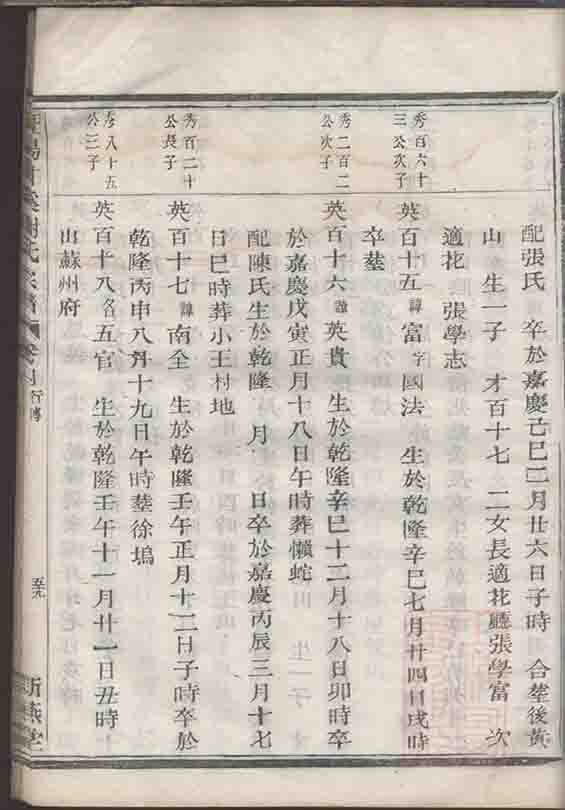 配張氏　卒於嘉慶己巳二月廿六日子時　合塋後黃
山　生一子　才百十七　二女長適花廳張學富　次
適花　張學志
秀百六十
三公次子
英百十五諱富字國法　生於乾隆辛巳七月廿四日戌時
卒塋
秀二百二
公次子
英百十六諱英貴　生於乾隆辛巳十二月十八日卯時卒
於嘉慶戊寅正月十八日午時葬懶蛇
配陳氏生於乾隆　月　日卒於嘉慶丙辰三月十七
日巳時葬小王村地
秀百二十
公長子
英百十七諱南全　生於乾隆壬午正月十二日子時卒於
乾隆丙申八月十九日午時塋徐塢
秀八十五
公三子
英百十八名五官　生於乾隆壬午十一月廿一日丑時
山蘇州府
謝氏宗譜
行傳
五十九